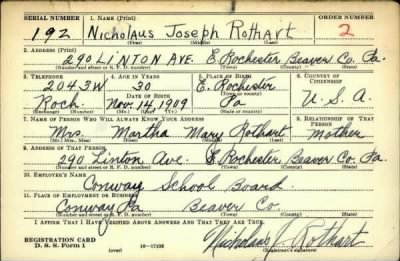 SERIAL NUMBER 1. NAME (Print) ORDER NUMBER
192 Nicholaus Joseph Rothart 2
(First) (Middle) (Last)
2. ADDRESS (Print)
290 LINTON AVE. E. Rochester Beaver Co. Pa.
(Number and street or R. F. D. number) (Town) (County) (State)
3. TELEPHONE 4. AGE IN YEARS 5. PLACE OF BIRTH 6. COUNTRY OF CITIZENSHIP
2043W 30 E. Rochester
DATE OF BIRTH (Town or county)
Roch. Nov. 14, 1909 Pa U.S.A.
(Exchange) (Number) (Mo.) (Day) (Yr.) (State or country)
7. NAME OF PERSON WHO WILL ALWAYS KNOW YOUR ADDRESS 8. RELATIONSHIP OF THAT PERSON
Mrs. Martha Mary Rothart Mother
(Mr., Mrs., Miss) (First) (Middle) (Last)
9. ADDRESS OF THAT PERSON
290 Linton Ave. E. Rochester Beaver Co. Pa
(Number and street or R. F. D. number) (Town) (County) (State)
10. EMPLOYER'S NAME
Conway School Board
11. PLACE OF EMPLOYMENT OR BUSINESS
Conway Pa Beaver Co.
(Number and street or R. F. D. number) (Town) (County) (State)
I AFFIRM THAT I HAVE VERIFIED ABOVE ANSWERS AND THAT THEY ARE TRUE.
REGISTRATION CARD
D. S. S. Form 1 16-17105 Nicholaus J. Rothart
(Registrant's signature)